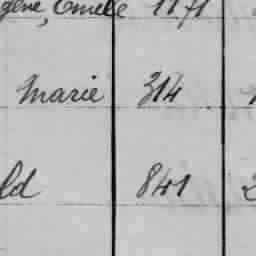 gène, Emile 1171
Marie 314
ld 841 2